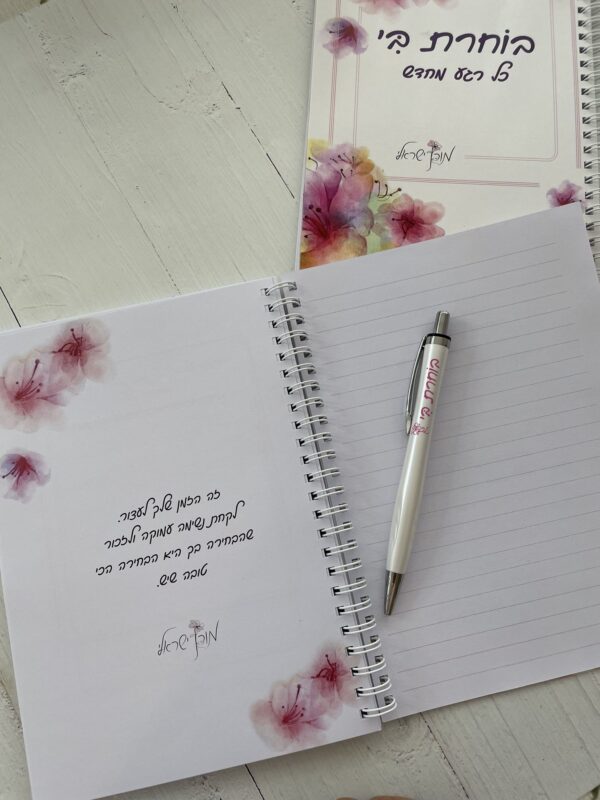 בּוֹחרת בִּי
כל רגע מחדש
מורן ישראלי
זה הזמן שלך לעצור.
לקחת נשימה עמוקה ולזכור
שהבחירה בך היא הבחירה הכי
טובה שיש.
מורן ישראלי
בוחרת בי